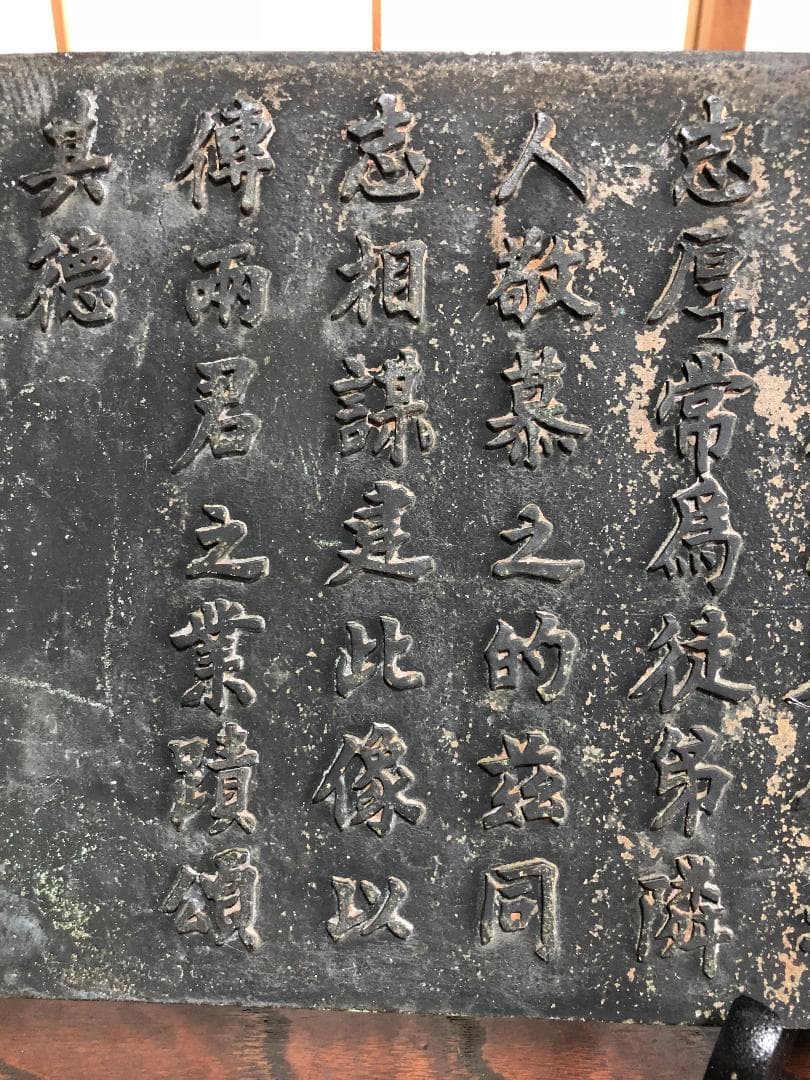 志厚常爲徒弟隣
人敬慕之的茲同
志相謀建此像以
傳兩君之業蹟頌
其德